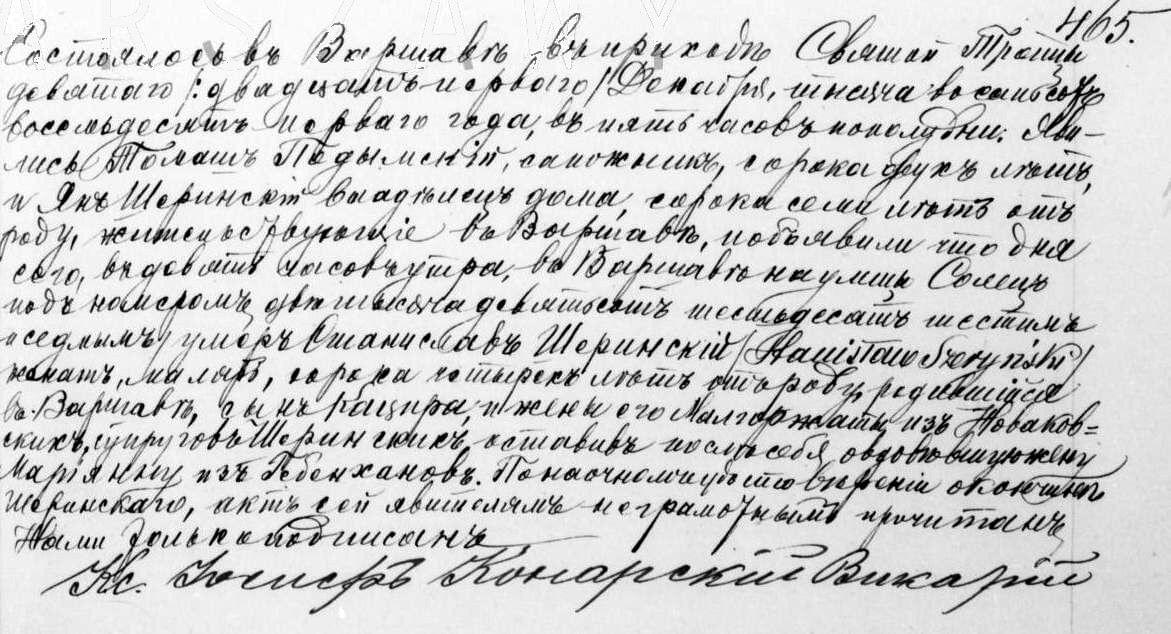 WARSZAWY
465.
Состоялось въ Варшавѣ, въ приходѣ Святой Троицы
девятаго /: двадцать перваго / Декабря, тысяча восемьсотъ
восемьдесятъ перваго года, въ пять часовъ пополудни. Яви-
лись Томашъ Подымскій, сапожникъ, сорока двухъ лѣтъ,
и Янъ Шеринскій владѣлецъ дома, сорока семи лѣтъ отъ
роду, жительствующіе въ Варшавѣ, и объявили что дня
сего, въ девять часовъ утра, въ Варшавѣ на улицѣ Солецъ
подъ номеромъ двѣ тысяча девятьсотъ шестьдесятъ шестымъ
и седмымъ, умеръ Станиславъ Шеринскій / Stanisław Szeryński /
женатъ, маляръ, сорока четырехъ лѣтъ отъ роду, родившійся
въ Варшавѣ, сынъ Кацпра, и жены его Малгоржаты изъ Новаков-
скихъ, супруговъ Шеринскихъ, оставивъ послѣ себя овдовѣвшую жену
Маріянну изъ По наочномъ удостовѣреніи о кончинѣ
Шеринскаго, актъ сей явителямъ неграмотнымъ прочитанъ,
Нами только подписанъ
Кс. Іосифъ Конарскій Викарій